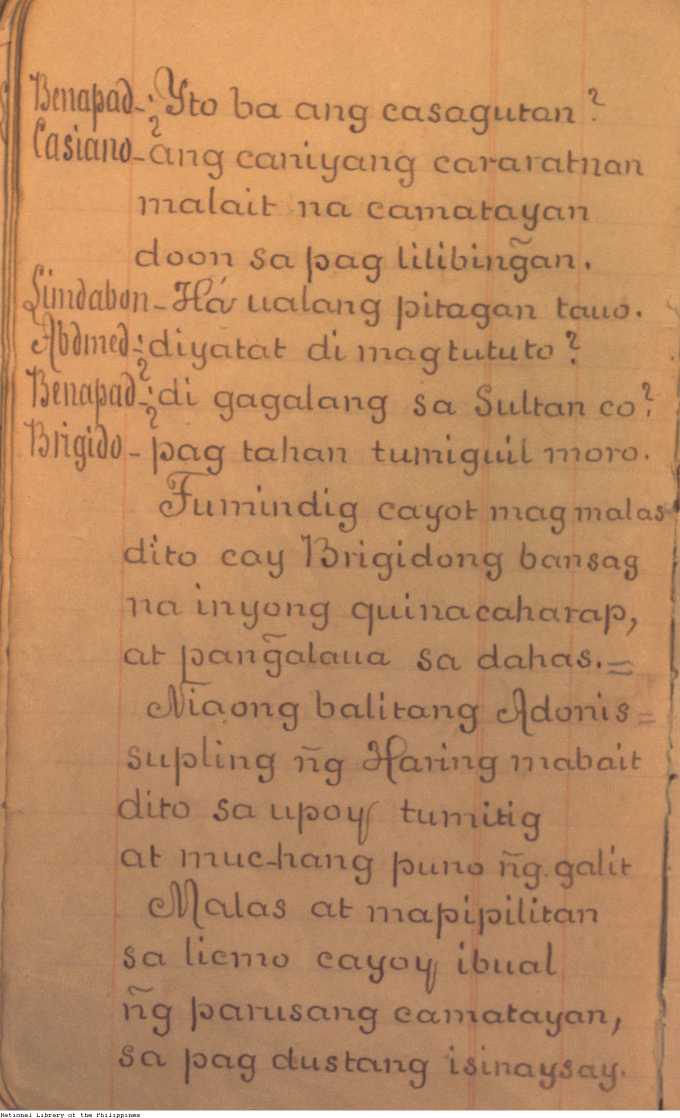 Benapad-¿Yto ba ang casagutan?
Casiano-ang caniyang cararatnan
malait na camatayan
doon sa pag lilibing̃an.
Simdabon-Há ualang pitagan tauo.
Abdmed-¿diyatat di magtututo?
Benapad-¿di gagalang sa Sultan co?
Brigido-pag tahan tumiguil moro.
Tumindig cayot mag malas
dito cay Brigidong bansag
na inyong quinacaharap,
at pang̃alaua sa dahas.=
Niaong balitang Adonis=
supling ñg Haring mabait
dito sa upoy tumitig
at muc-hang puno ñg galit
Malas at mapipilitan
sa licmo cayoy ibual
ñg parusang camatayan,
sa pag dustang isinaysay.
National Library of the Philippines